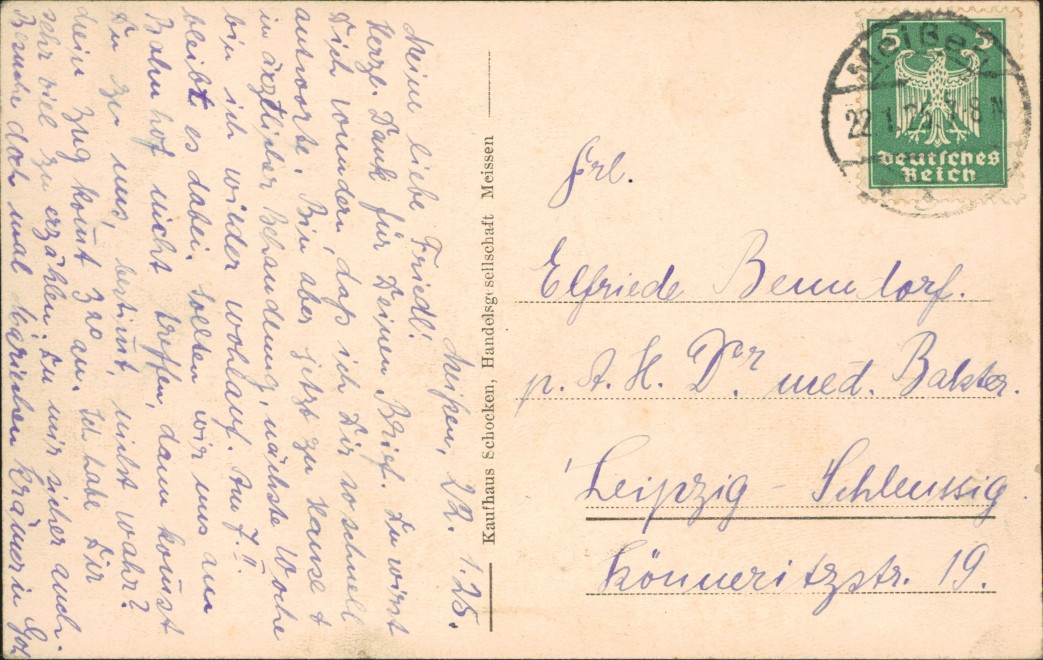 Meißen, 22. 1. 25.
Meine liebe Friedl!
Herzl. Dank für Deinen Brief. Du wirst
Dich wundern, daß ich Dir so schnell
antworte. Bin aber jetzt zu Hause &
in ärztlicher Behandlung, nächste Woche
bin ich wieder wohlauf. Am 7. II.
bleibt es dabei. Sollten wir uns am
Bahnhof nicht treffen, dann kommst
Du zu uns, bestimt, nicht wahr?
Mein Zug komt 3 20 an. Ich habe Dir
sehr viel zu erzählen, Du mir sicher auch.
doch mal
Kaufhaus Schocken, Handelsgesellschaft Meissen
Meißen
22.1.25 7-8 N
5 5
Deutsches
Reich
Frl.
Elfriede Benndorf.
p. A. H. Dr. med. Bakter.
Leipzig - Schleussig.
Könneritzstr. 19.